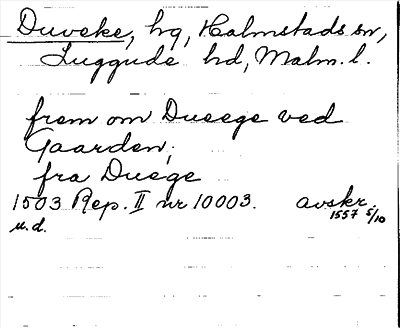 Duveke, hg, Halmstads sn,
Luggude hd, Malm. l.
frem om Dueege ved
Gaarden;
fra Duege
1503 Rep. II nr 10003. avskr.
u.d. 1557 5/10